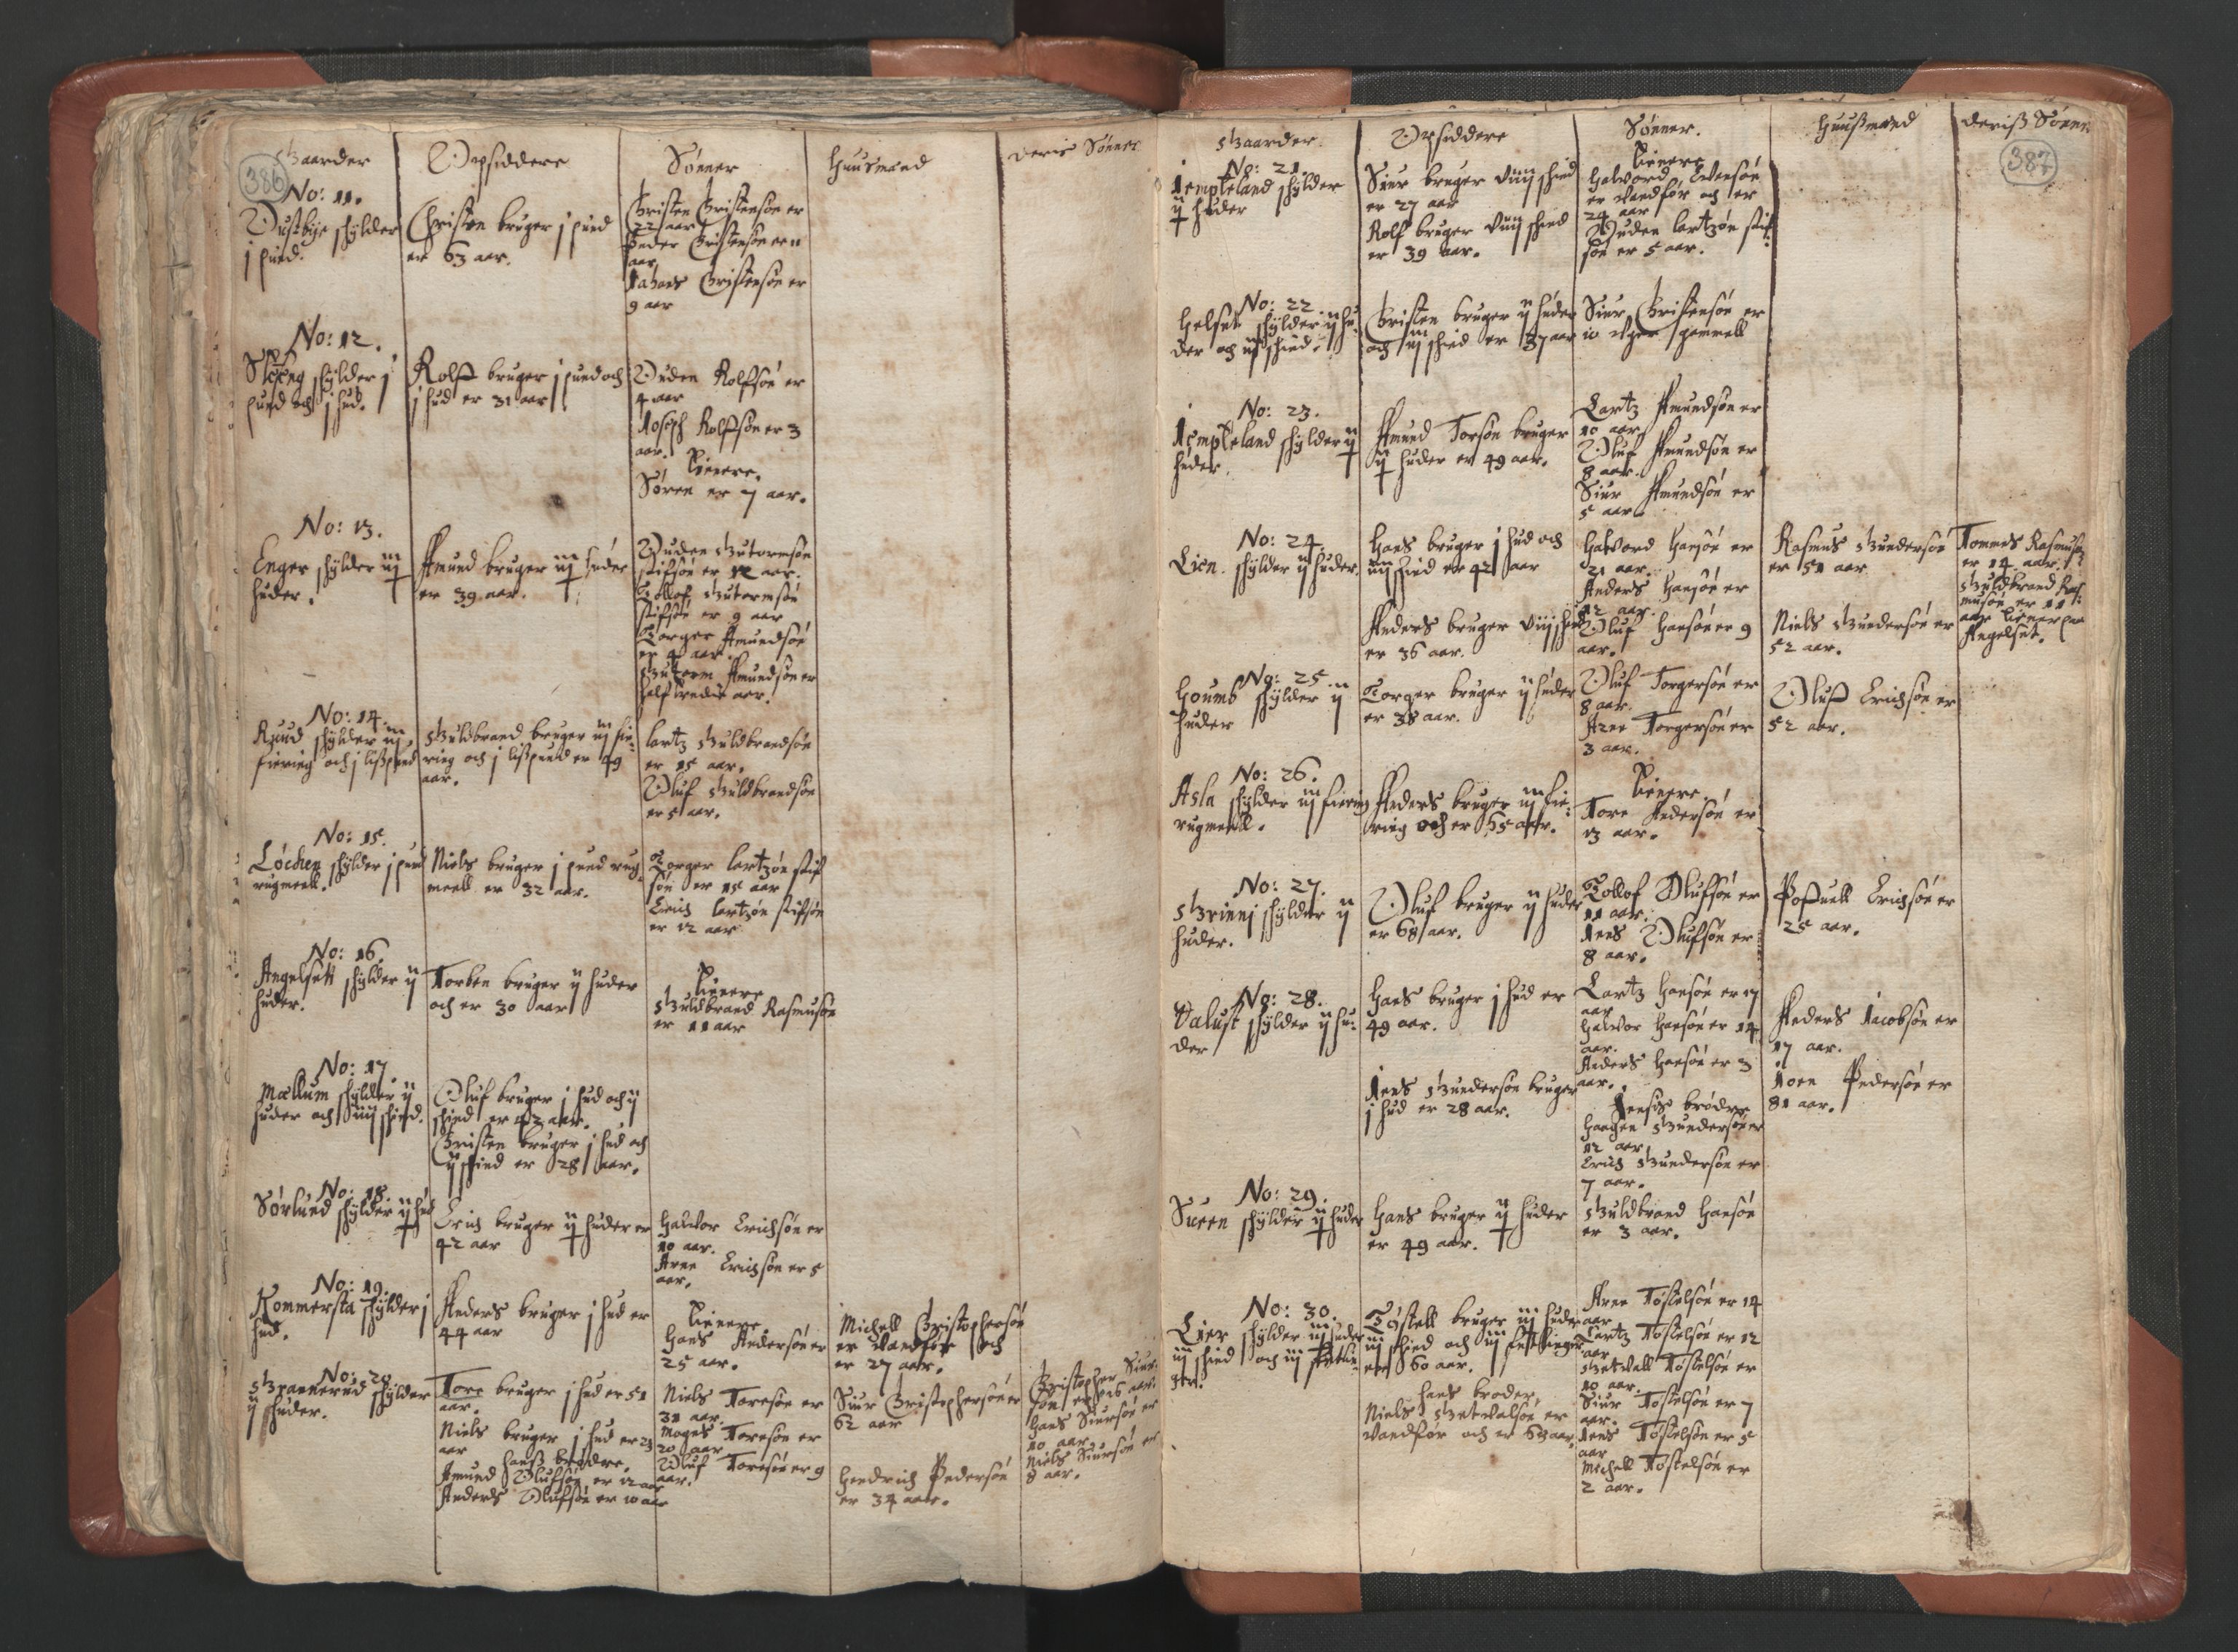 386
Gaarder
Opsiddere
Sønner
Huusmænd
Deris Sønner
No: 11.
Oustbye schylder
j pund.
Christen bruger j pund
er 63 aar.
Christen Christensøn er
22 aar
Peder Christensøn er 11
aar
Johans Christensøn er
9 aar
No: 12.
schylder j
pund och j hud.
Rolff bruger j pund och
j hud er 31 aar
Ouden Rolfsøn er
4 aar
Joseph Rolfsøn er 3
aar.
Tienere.
Søren er 7 aar.
No: 13.
Enger schylder iij
huder.
Amund bruger iij huder
er 39 aar.
Ouden Gutormsøn
stifsøn er 12 aar.
Tollof Gutormsøn
stifsøn er 9 aar
Torger Amundsøn
er 4 aar.
Gutorm Amundsøn er
half tredie aar.
No: 14.
Ruud schylder iij
fiering och j lispund
Guldbrand bruger iij fie-
ring och j lispund er 49
aar.
Lartz Guldbrandsøn
er 15 aar.
Oluf Guldbrandsøn
er 5 aar.
No: 15.
Løchen schylder j pund
rugmeell.
Niels bruger j pund rug
meell er 32 aar.
Torger Lartzøn stif
søn er 15 aar
Erich Lartzøn stifsøn
er 12 aar
No: 16.
Angelsett schylder ij
huder.
Torben bruger ij huder
och er 30 aar
Tienere
Guldbrand Rasmusøn
er 11 aar
No: 17.
Mællum schylder ij
huder och iiij schind.
Oluf bruger j hud och ij
schind er 42 aar.
Christen bruger j hud och
ij schind er 28 aar.
No: 18.
Sørlund schylder ij hud
Erich bruger ij huder er
42 aar
Halvor Erichsøn er
10 aar.
Arne Erichsøn er 5
aar.
No: 19.
Kommersta schylder j
hud.
Anders bruger j hud er
44 aar
Tienere
Hans Andersøn er
25 aar.
Michell Christophersøn
er vandfør och
er 27 aar.
No: 20
Grannerud schylder
ij huder.
Tore bruger j hud er 51
aar.
Niels bruger j hud er 23
aar
Hans brødre.
Amund Olufsøn er 12 aar
Anders Olufsøn er 10 aar
Niels Toresøn er
31 aar.
Mogns Toresøn er
20 aar
Oluf Toresøn er 9
aar.
Siur Christophersøn er
62 aar
Hendrich Pedersøn
er 34 aar.
Christopher Siur-
søn er 16 aar.
Hans Siursøn er
10 aar
Niels Siursøn er
8 aar.
387
Gaarder.
Opsiddere
Sønner.
Huusmænd
Deris Sønner
No: 21.
Jempteland schylder
ij huder
Siur bruger viiij schind
er 27 aar
Rolf bruger viiij schind
er 39 aar.
Tienere
Halvord Evensøn
er vandfør och er
24 aar
Ouden Lartzøn stif
søn er 5 aar.
No: 22.
Helset schylder ij hu-
der och iij schind.
Christen bruger ij huder
och iij schind er 37 aar
Siur Christensøn er
10 uger gammell
No: 23.
Jempteland schylder ij
huder.
Amund Torsøn bruger
ij huder er 49 aar.
Lartz Amundsøn er
10 aar.
Oluf Amundsøn er
8 aar.
Siur Amundsøn er
5 aar
No: 24.
Lien schylder ij huder.
Hans bruger j hud och
iiij schind er 42 aar
Anders bruger viij schind
er 36 aar.
Halvord Hansøn er
21 aar.
Anders Hansøn er
12 aar.
Oluf Hansøn er 9
aar.
Rasmus Gundersøn
er 51 aar
Niels Gundersøn er
52 aar.
Tommes Rasmusøn
er 14 aar.
Guldbrand Ras-
musøn er 11
aar tiener paa
Angelset.
No: 25
Houmb schylder ij
huder
Torger bruger ij huder
er 38 aar.
Oluf Torgersøn er
8 aar.
Arne Torgersøn er
3 aar.
Oluff Erichsøn er
52 aar.
No: 26.
Asla schylder iij fiering
rugmeell.
Anders bruger iij fie-
ring och er 65 aar.
Tienere
Tore Andersøn er
13 aar.
No: 27.
Grinnj schylder ij
huder.
Oluf bruger ij huder
er 68 aar.
Tollof Olufsøn er
11 aar.
Jens Olufsøn er
8 aar.
Poffuell Erichsøn er
25 aar.
No: 28.
Valust schylder ij hu-
der
Hans bruger j hud er
49 aar.
Jens Gundersøn bruger
j hud er 28 aar.
Lartz Hansøn er 17
aar
Halvor Hansøn er 14
aar.
Anders Hansøn er 3
aar.
Jensis brødre
Haagen Gundersøn er
12 aar
Erich Gundersøn er
7 aar.
Anders Jacobsøn er
17 aar.
Joen Pedersøn er
81 aar.
No: 29.
Sueen schylder ij huder
Hans bruger ij huder
er 49 aar.
Guldbrand Hansøn
er 3 aar.
No: 30.
Lier schylder iij huder
iij schind och iij settin-
ger.
Tøstell bruger iij huder
iij schind och iij settinger
er 60 aar.
Hans broder
Niels Getvalsøn er
vandfør och er 63 aar.
Arne Tøstelsøn er 14
aar
Lartz Tøstelsøn er 12
aar
Getvall Tøstelsøn er
10 aar.
Siur Tøstelsøn er 7
aar.
Jens Tøstelsøn er 5
aar
Michell Tøstelsøn er
2 aar.